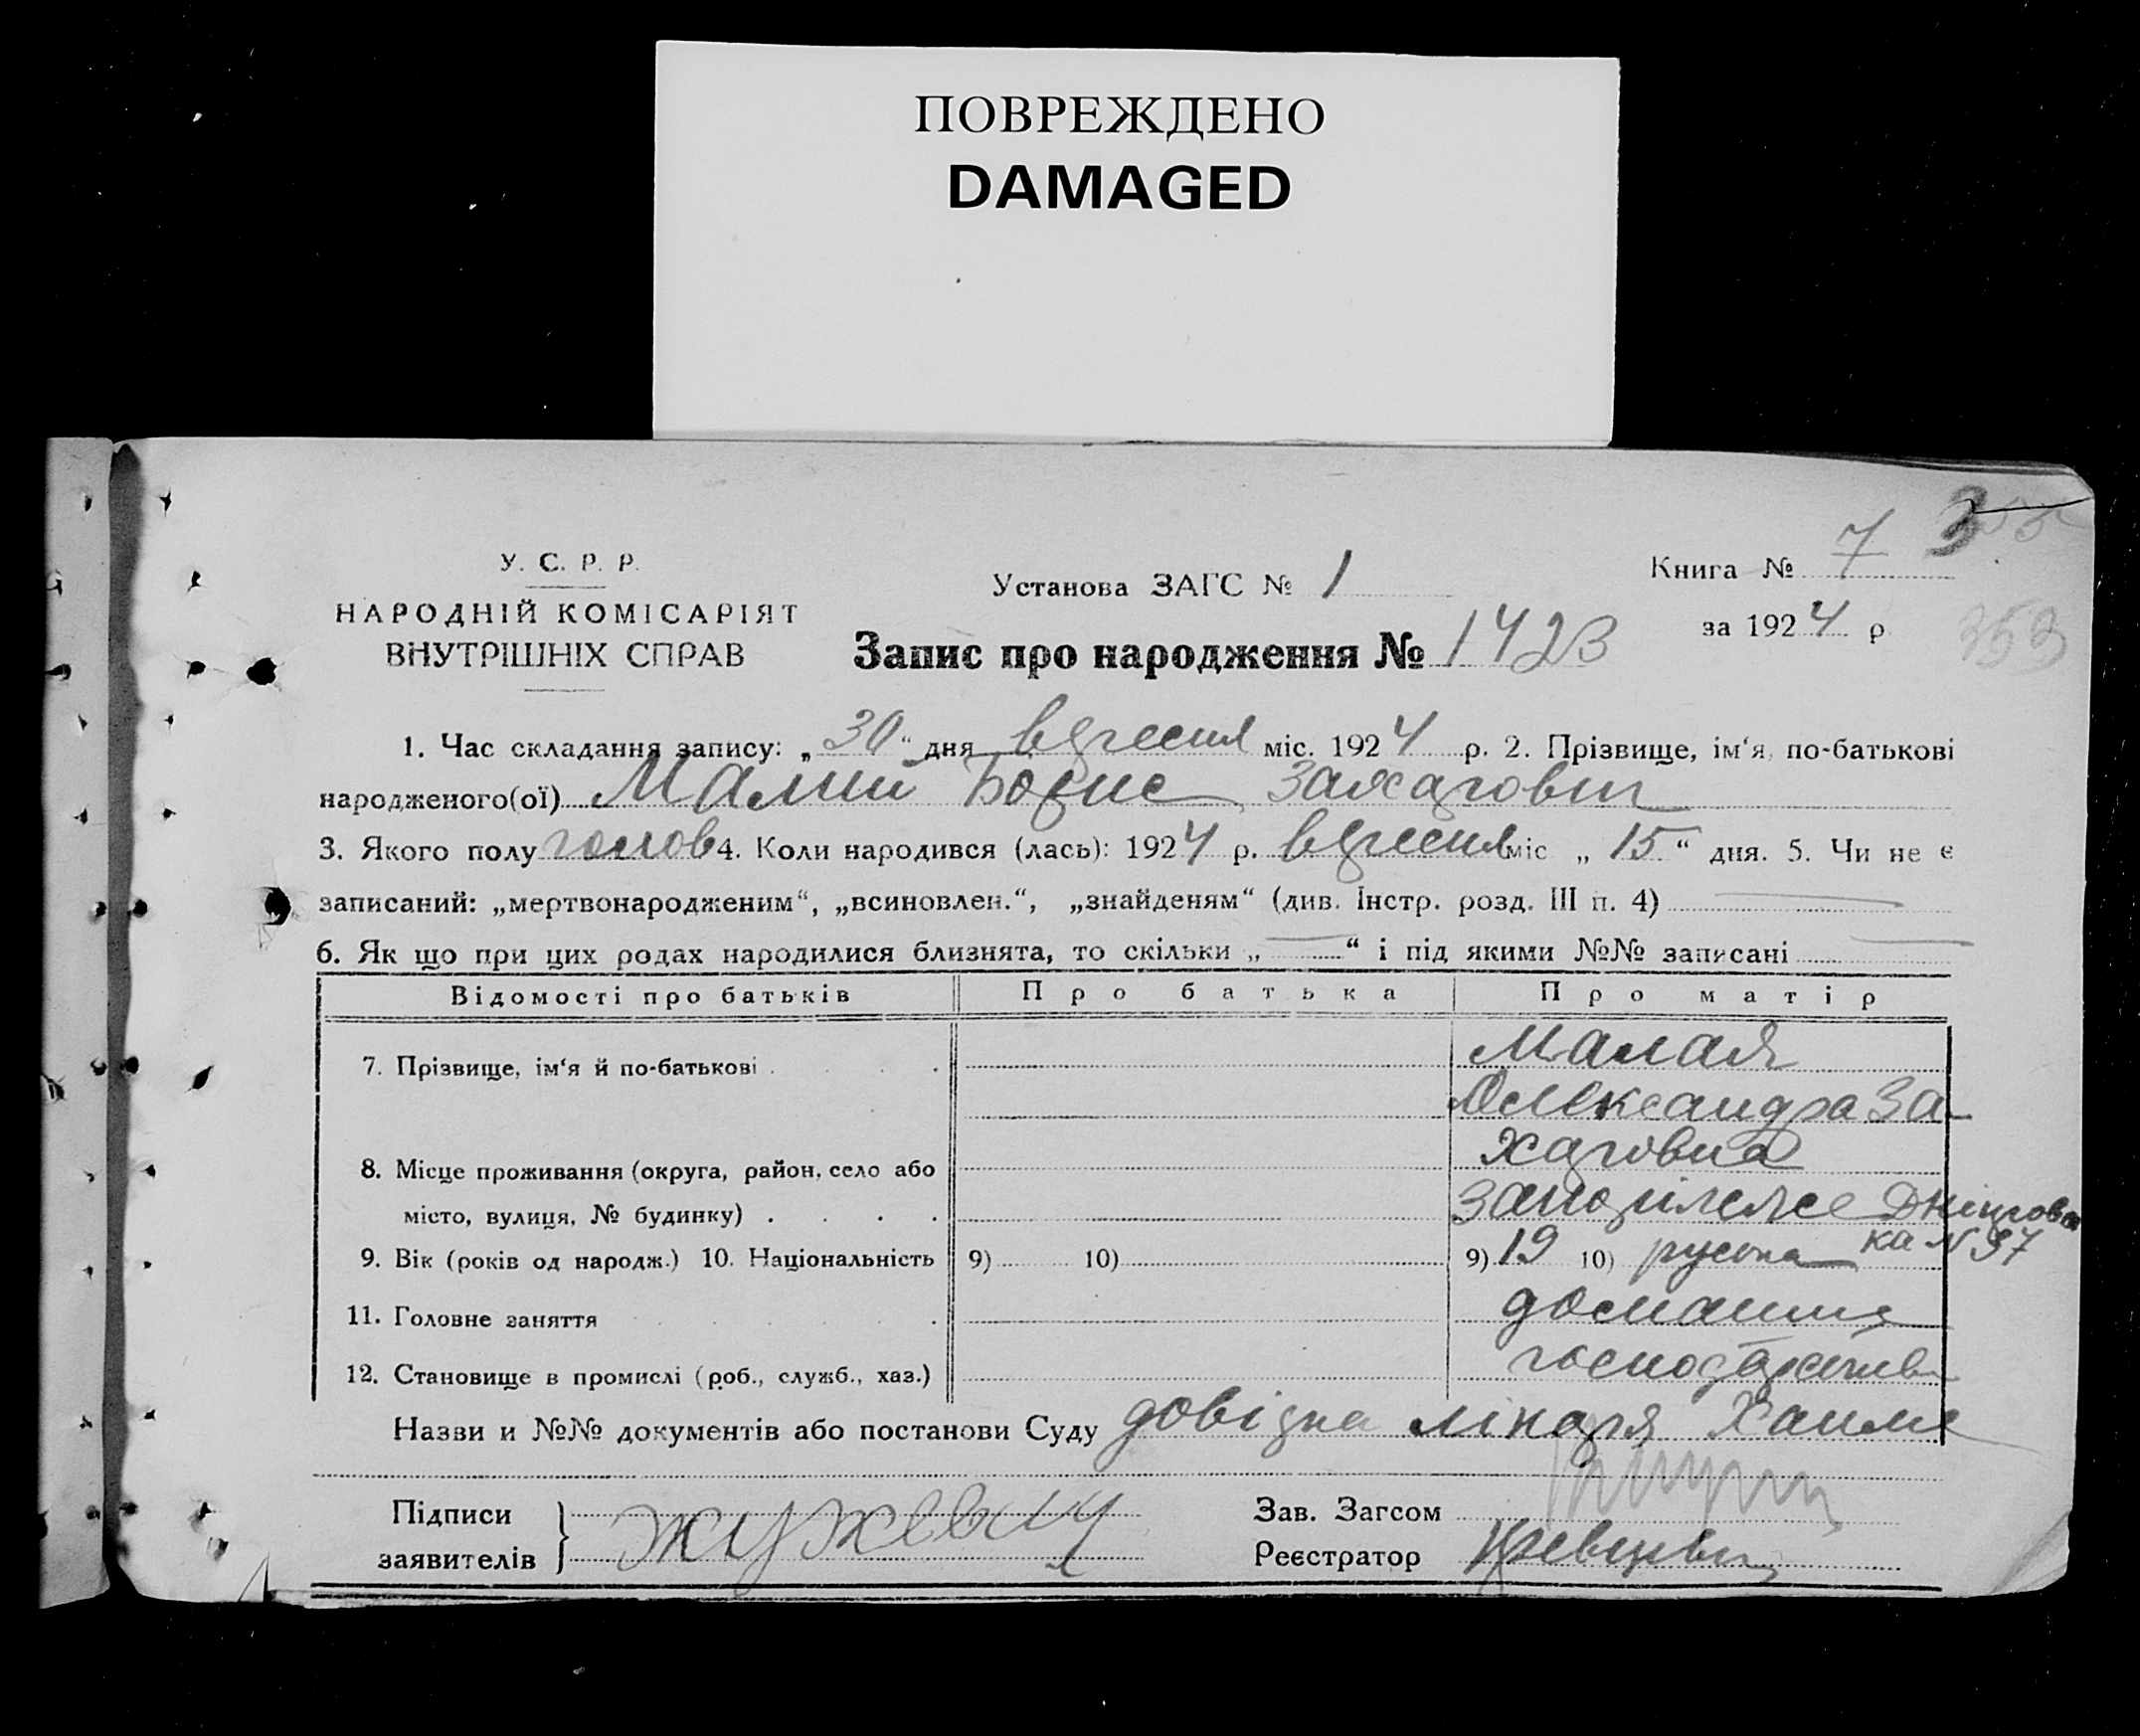 ПОВРЕЖДЕНО
DAMAGED
У. С. Р. Р.
НАРОДНІЙ КОМІСАРІЯТ
ВНУТРІШНІХ СПРАВ
Установа ЗАГС № 1
Книга № 7
за 1924 р
353
Запис про народження № 1423
1. Час складання запису: „30“ дня вересня міс. 1924 р. 2. Прізвище, ім‘я, по-батькові
народженого(ої) Малий Борис Захарович
3. Якого полу голов 4. Коли народився (лась): 1924 р. вересня міс „15“ дня. 5. Чи не є
записаний: „мертвонародженим“, „всиновлен.“, „знайденям“ (див. Інстр. розд. III п. 4)
6. Як що при цих родах народилися близнята, то скільки „ “ і під якими №№ записані
Відомості про батьків Про батька Про матір
7. Прізвище, ім‘я й по-батькові Малая
Олександра За-
харовна
8. Місце проживання (округа, район, село або
місто, вулиця, № будинку)
9. Вік (років од народж.) 10. Національність 9) 10) 9) 19 10) руська ка № 97
11. Головне заняття домашнє
12. Становище в промислі (роб., служб., хаз.) господарство
Назви и №№ документів або постанови Суду довідка лікаря
Підписи
заявителів
Зав. Загсом
Реєстратор